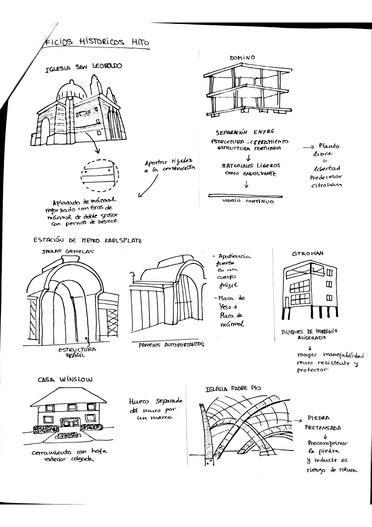 FICIOS HISTORICOS HITO
IGLESIA SAN LEOPOLDO
Aportar rigidez
a la construcción
Aplacado de mármol
reforzado con tiras de
mármol de doble grosor
con pernos de bronce.
DOMINO
SEPARACIÓN ENTRE
ESTRUCTURA - CERRAMIENTO
ESTRUCTURA PORTICADA
MATERIALES LIGEROS
COMO ENVOLVENTE
VUELO CONTINUO
→ Planta
libre
o
libertad
Predecesor
citrohan
ESTACIÓN DE METRO KARLSPLATZ
JAULAS GEMELAS
ESTRUCTURA
FRÁGIL
PANELES AUTOPORTANTES
- Apariencia
fuerte
en un
cuerpo
frágil
- Placa de
Yeso +
Placa de
mármol
CITROHAN
BLOQUES DE HORMIGÓN
ALIGERADO
mayor manejabilidad
muro resistente y
protector
CASA WINSLOW
Hueco separado
del muro por
un marco
cerramiento con hoja
exterior colgada.
IGLESIA PADRE PIO
→ PIEDRA
PRETENSADA
Precomprimir
la piedra
y reducir el
riesgo de rotura.